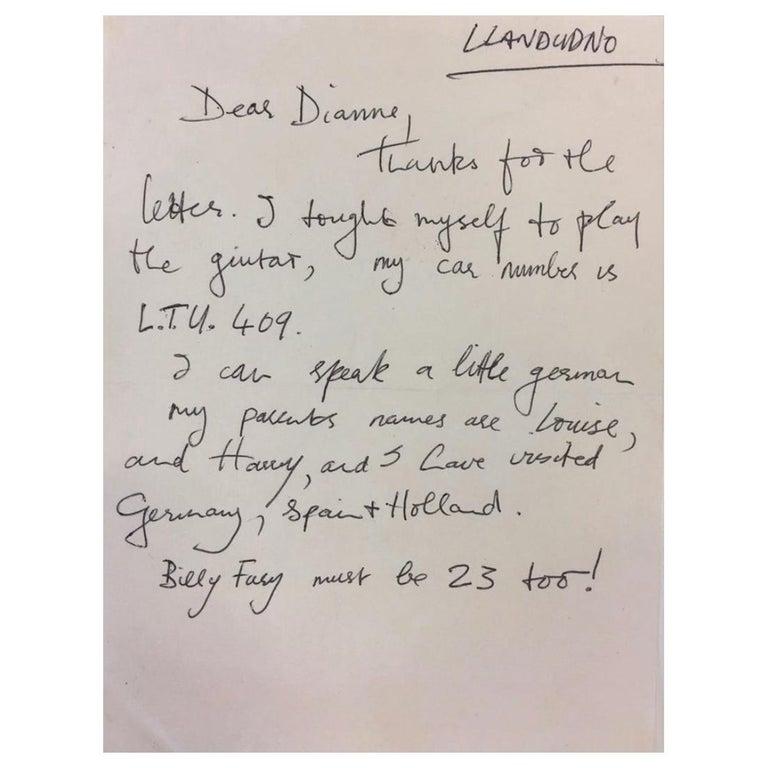 LLANDUDNO
Dear Dianne,
Thanks for the
letter. I tought myself to play
the giutar, my car number is
L.T.U. 409.
I can speak a little german
my parents names are Louise,
and Harry, and I have visited
Germany, Spain + Holland.
Billy Fury must be 23 too!